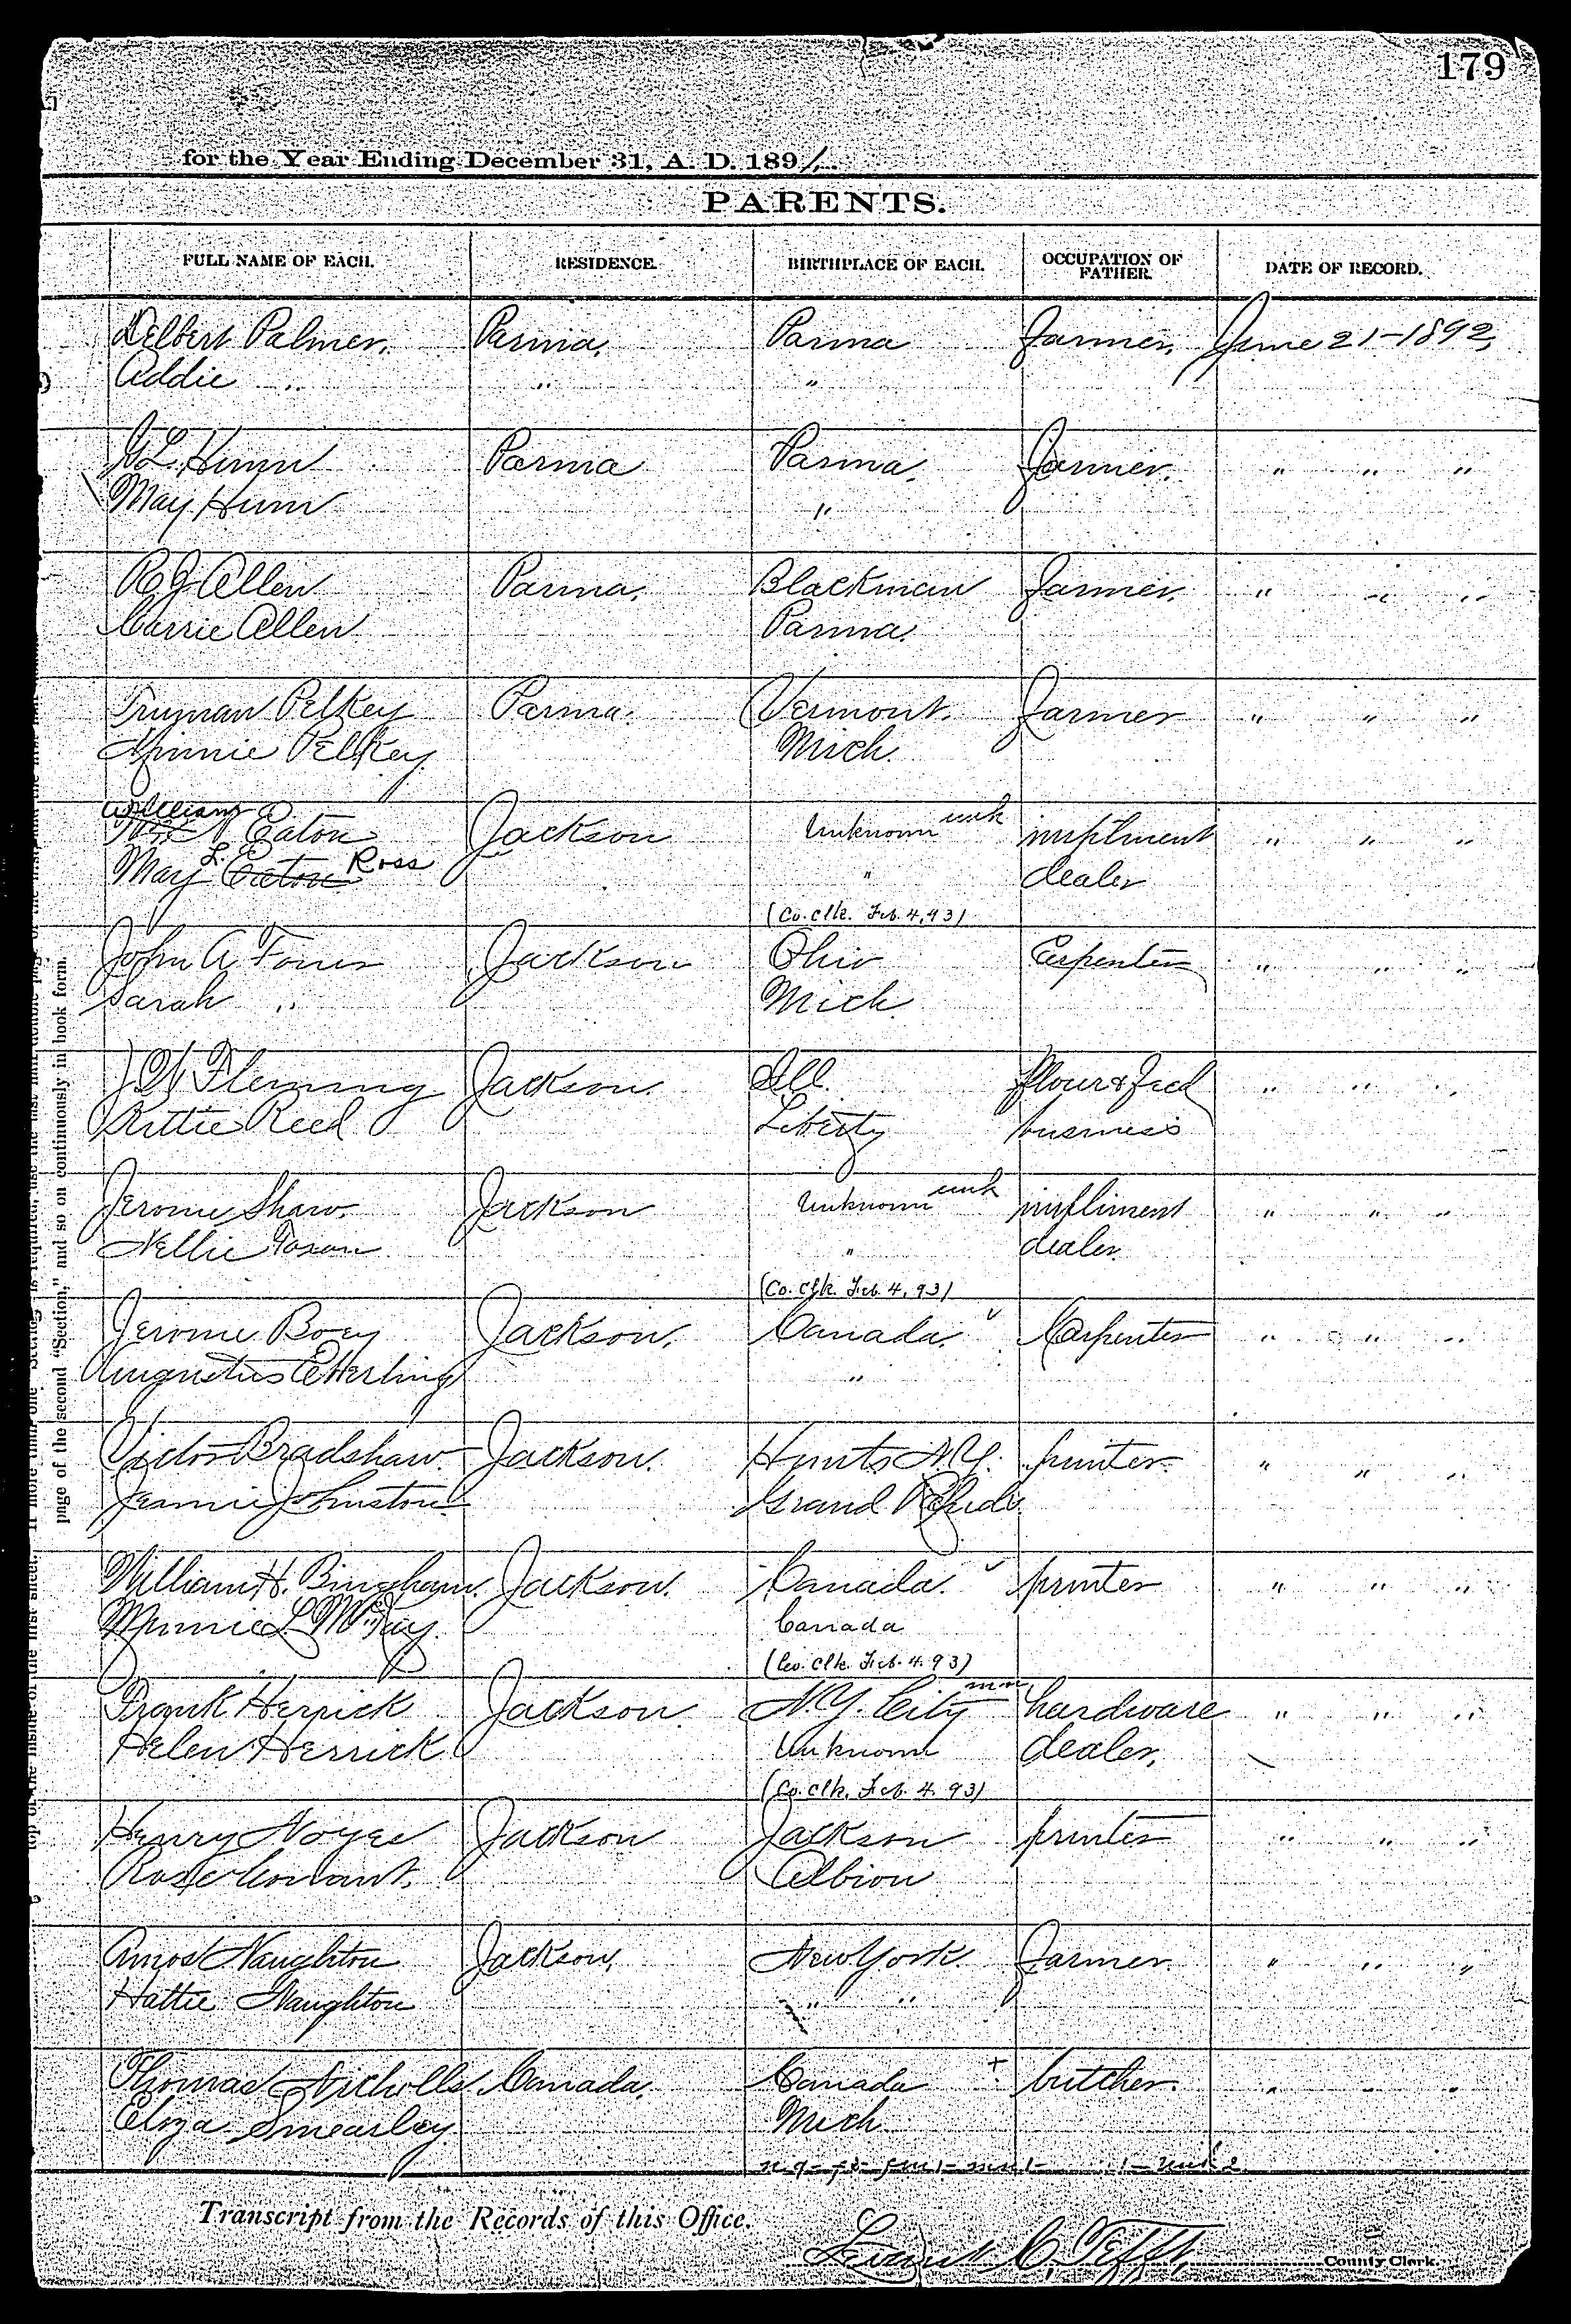 179
for the Year Ending December 31, A. D. 1891.
PARENTS.
FULL NAME OF EACH. RESIDENCE. BIRTHPLACE OF EACH. OCCUPATION OF FATHER. DATE OF RECORD.
Delbert Palmer. Parma. Parma farmer. June 21-1892,
Addie " " "
Hunn Parma Parma. farmer. " " "
May Hunn "
R J Allen Parma. Blackman farmer. " " "
Carrie Allen Parma.
Truman Pelkey Parma. Vermont. farmer " " "
Minnie Pelkey Mich.
William A
Eaton Jackson Unknown unk impliment " " "
May L. Eaton Ross " dealer
(Co. Clk. Feb. 4, 93)
John A Jackson Ohio Carpenter " " "
Sarah " Mich
Fleming Jackson. Ill. flour & feed " " "
Kittie Reed Liberty business
Jerome Shaw. Jackson Unknown unk impliment " " "
Nellie " dealer.
(Co. Clk. Feb. 4, 93)
Jerome Boey Jackson. Canada. Carpenter " " "
Augustus "
Victor Bradshaw. Jackson. Hunts N.Y. printer. " " "
Jennie Johnston Grand Rapids.
William H. Bingham. Jackson. Canada. printer " " "
Minnie L McKay. Canada
(Co. Clk. Feb. 4. 93)
Frank Herrick Jackson. N.Y. City hardware " " "
Helen Herrick Unknown dealer.
(Co. Clk. Feb. 4. 93)
Henry Noyes Jackson Jackson printer " " "
Rose Conant. Albion
Amos Naughton Jackson. New York. farmer. " " "
Hattie Naughton " "
Thomas Nicholls Canada. Canada + butcher. " " "
Eliza Smearley. Mich
Transcript from the Records of this Office.
C. Tefft, County Clerk.
page of the second "Section," and so on continuously in book form.
top of the inside of the first sheet.